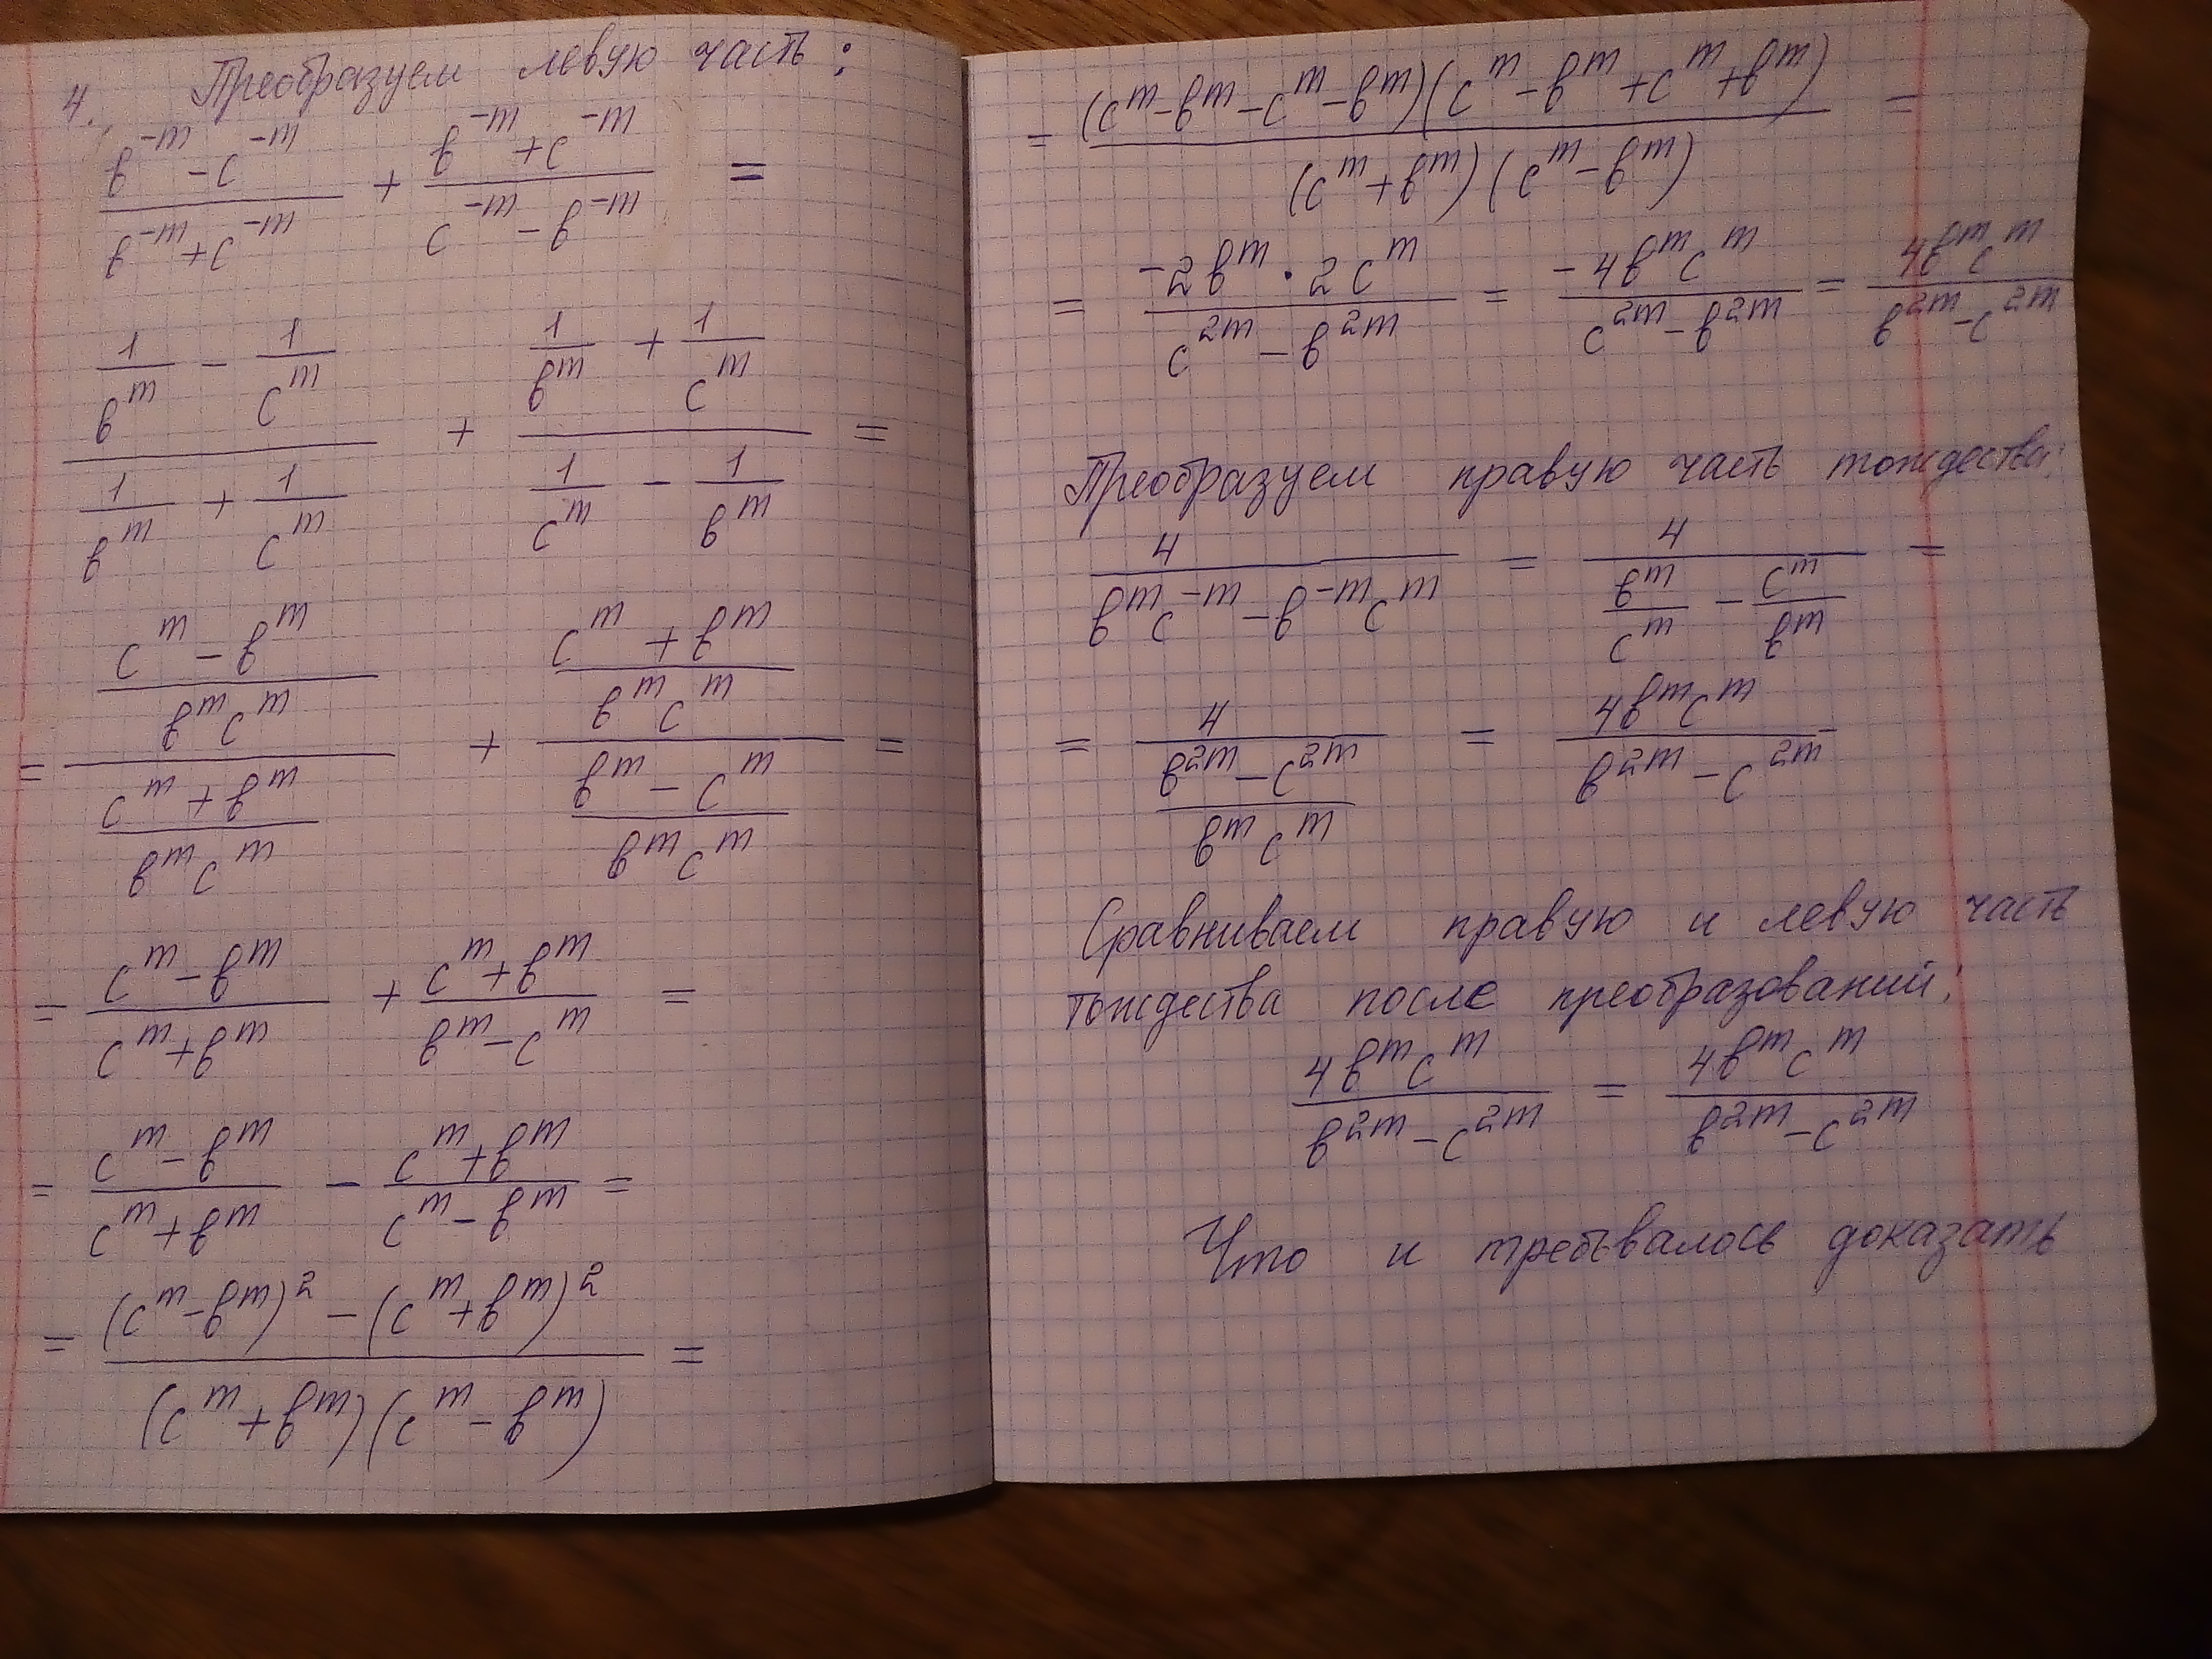 4. Преобразуем левую часть:
(в^(-m) - c^(-m))/(в^(-m) + c^(-m)) + (в^(-m) + c^(-m))/(c^(-m) - в^(-m)) =
(1/в^m - 1/c^m)/(1/в^m + 1/c^m) + (1/в^m + 1/c^m)/(1/c^m - 1/в^m) =
= ((c^m - в^m)/(в^m c^m))/((c^m + в^m)/(в^m c^m)) + ((c^m + в^m)/(в^m c^m))/((в^m - c^m)/(в^m c^m)) =
= (c^m - в^m)/(c^m + в^m) + (c^m + в^m)/(в^m - c^m) =
= (c^m - в^m)/(c^m + в^m) - (c^m + в^m)/(c^m - в^m) =
= ((c^m - в^m)^2 - (c^m + в^m)^2)/((c^m + в^m)(c^m - в^m)) =
= ((c^m - в^m - c^m - в^m)(c^m - в^m + c^m + в^m))/((c^m + в^m)(c^m - в^m)) =
= (-2в^m · 2c^m)/(c^(2m) - в^(2m)) = (-4в^m c^m)/(c^(2m) - в^(2m)) = (4в^m c^m)/(в^(2m) - c^(2m))
Преобразуем правую часть тождества:
4/(в^m c^(-m) - в^(-m) c^m) = 4/(в^m/c^m - c^m/в^m) =
= 4/((в^(2m) - c^(2m))/(в^m c^m)) = (4в^m c^m)/(в^(2m) - c^(2m))
Сравниваем правую и левую часть
тождества после преобразований:
(4в^m c^m)/(в^(2m) - c^(2m)) = (4в^m c^m)/(в^(2m) - c^(2m))
Что и требовалось доказать